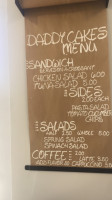 DADDYCAKES
MENU
SANDWICH
CHICKEN SALAD 6.00
TUNA SALAD 5.00
SIDES
2.00 EACH
PASTA SALAD
TOMATO CUCUMBER
CHIPS
SALADS
HALF 3.50 WHOLE 5.00
SPRING SALAD
SPINACH SALAD
COFFEE
LATTE 3.50
CAPPUCCINO